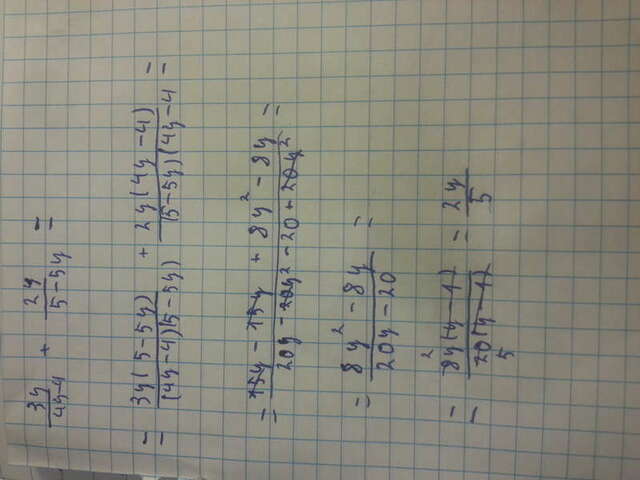 3y/(4y-4) + 2y/(5-5y) =
= 3y(5-5y)/(4y-4)(5-5y) + 2y(4y-4)/(5-5y)(4y-4 =
= (15y - 15y + 8y² - 8y)/(20y - 20y² - 20 + 20y²) =
= (8y² - 8y)/(20y - 20) =
= 8y(y-1)/20(y-1) = 2y/5
2
5